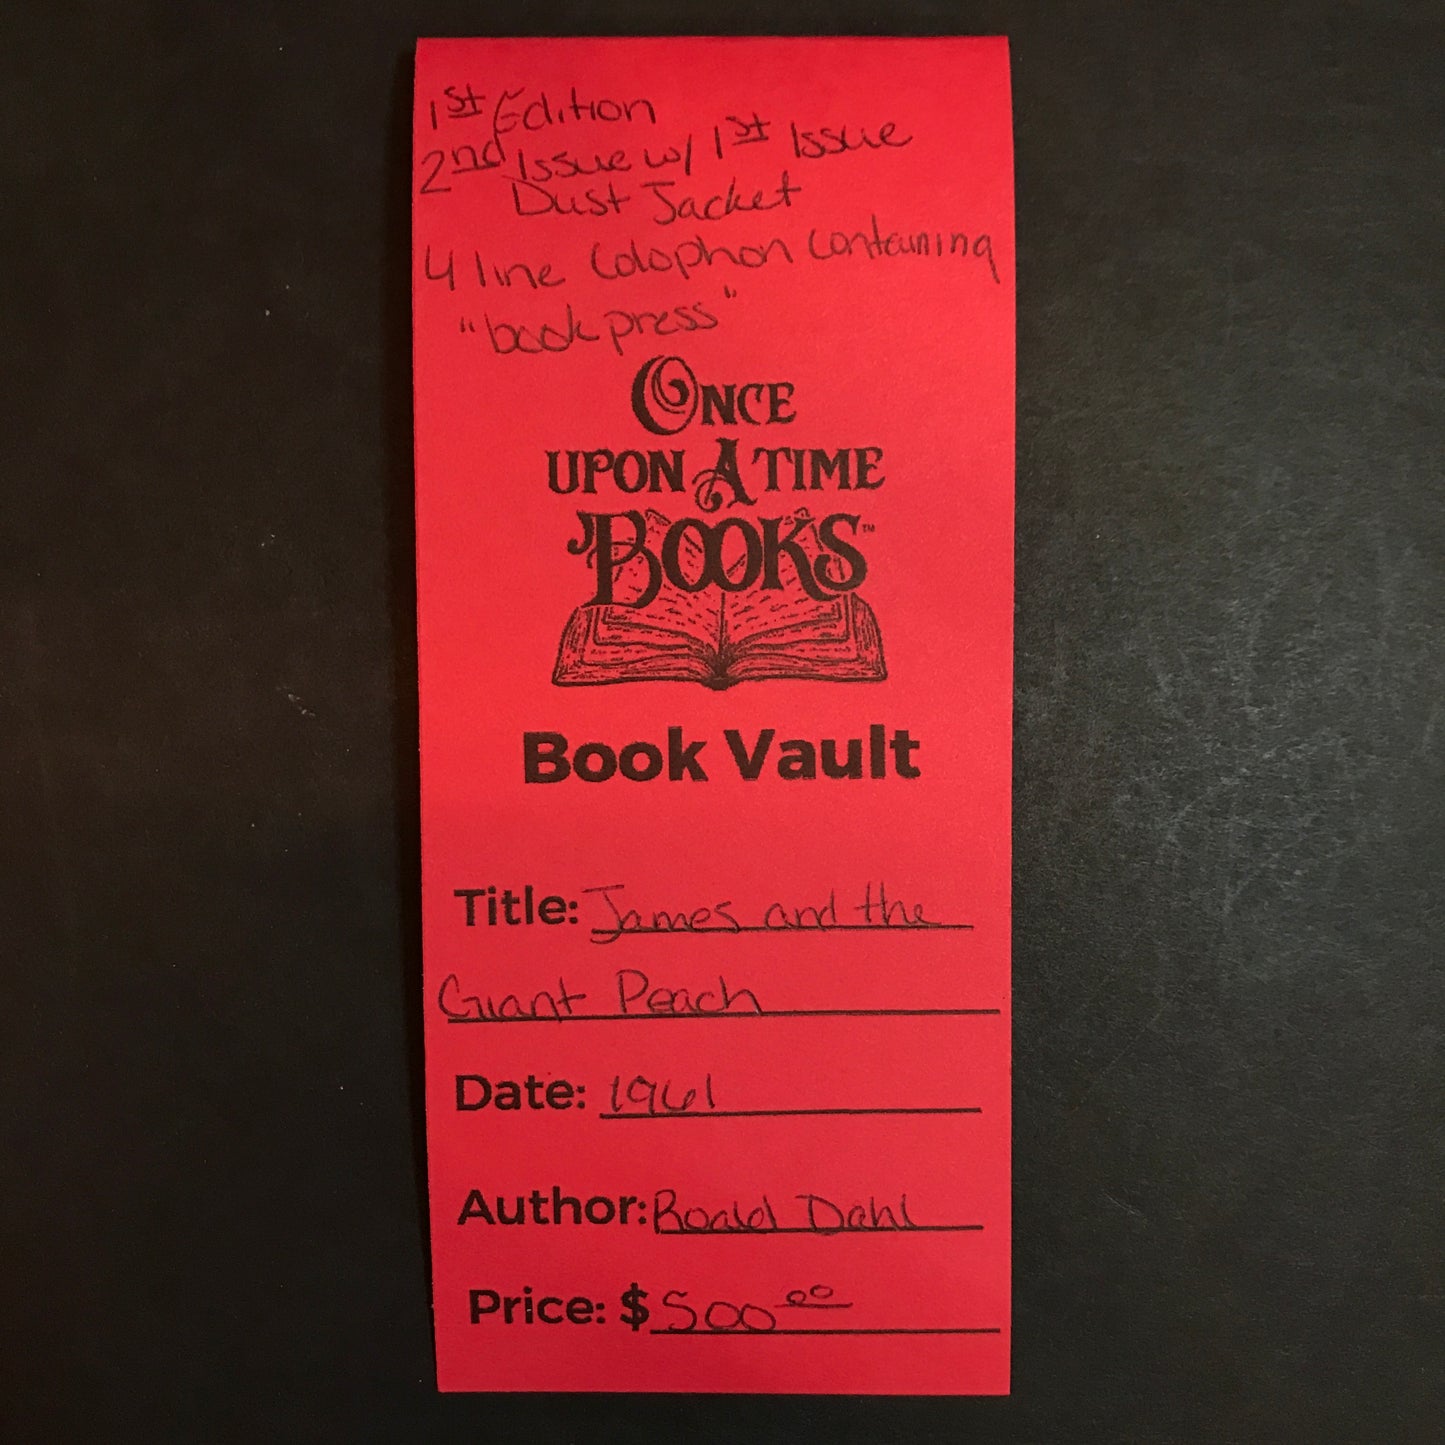 1st Edition
2nd Issue w/ 1st Issue
Dust Jacket
4 line Colophon containing
"book press"
ONCE
UPON A TIME
BOOKS™
Book Vault
Title: James and the
Giant Peach
Date: 1961
Author: Roald Dahl
Price: $500.00